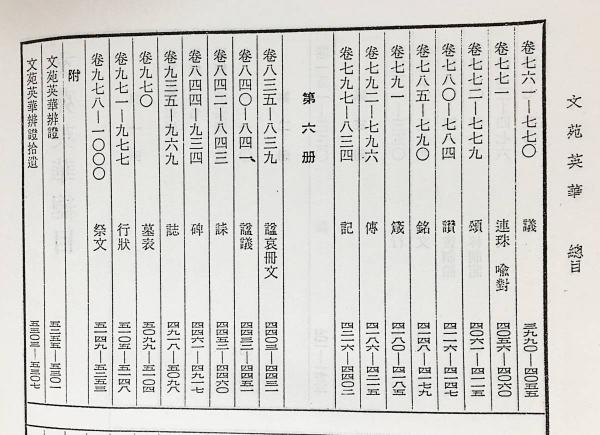 文苑英華 總目
卷七六一—七七〇 議 三九九〇—四〇五五
卷七七一 連珠 喻對 四〇五六—四〇六〇
卷七七二—七七九 頌 四〇六一—四一一五
卷七八〇—七八四 讚 四一一六—四一四七
卷七八五—七九〇 銘 四一四八—四一七九
卷七九一 箴 四一八〇—四一八五
卷七九二—七九六 傳 四一八六—四二一五
卷七九七—八三四 記 四二一六—四四〇二
第六册
卷八三五—八三九 諡哀冊文 四四〇三—四四三一
卷八四〇—八四一 諡議 四四三二—四四五一
卷八四二—八四三 誄 四四五二—四四六〇
卷八四四—九三四 碑 四四六一—四九一七
卷九三五—九六九 誌 四九一八—五〇九八
卷九七〇 墓表 五〇九九—五一〇四
卷九七一—九七七 行狀 五一〇五—五一四八
卷九七八—一〇〇〇 祭文 五一四九—五二五三
附
文苑英華辨證 五二五五—五三〇一
文苑英華辨證拾遺 五三〇三—五三〇七